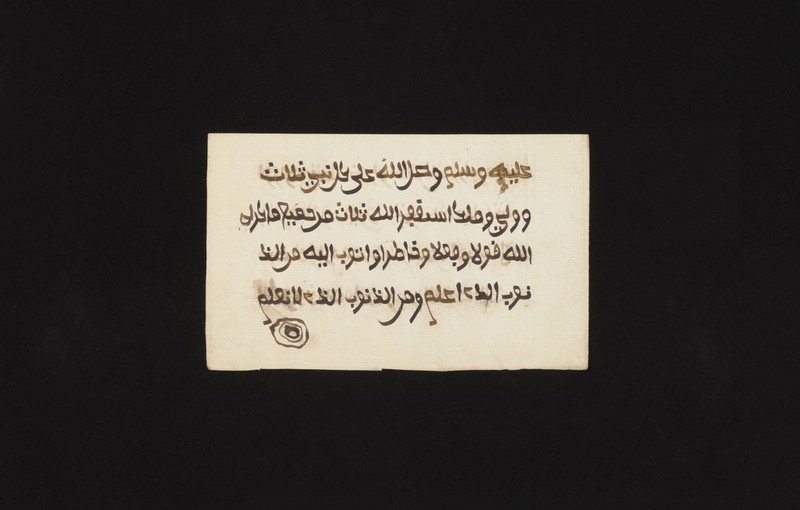 عليه وسلم وصل الله على كل نبي ثلاث
وولي وملك استغفر الله ثلاث من جميع ما كره
الله قولا وفعلا وخاطرا واتوب اليه من الذ
نوب الذي اعلم ومن الذنوب الذي لا نعلم